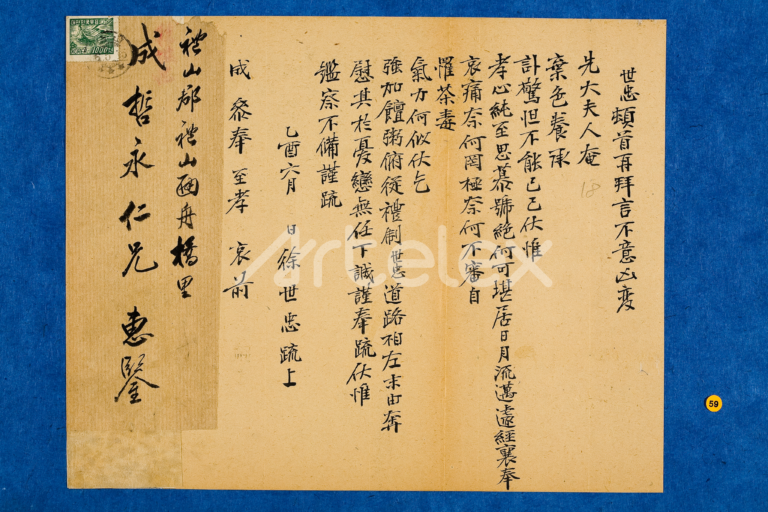 世忠頓首再拜言不意凶變
先大夫人奄
棄色養承
訃驚怛不能已已伏惟
孝心純至思慕號絕何可堪居日月流邁遽經襄奉
哀痛奈何罔極奈何不審自
罹荼毒
氣力何似伏乞
強加饘粥俯從禮制世忠道路相左末由奔
慰其於憂戀無任下誠謹奉疏伏惟
鑑察不備謹疏
乙酉六月 日徐世忠疏上
成參奉至孝 哀前
禮山郡禮山面舟橋里
成哲永仁兄惠鑒
1000
Artelex
59